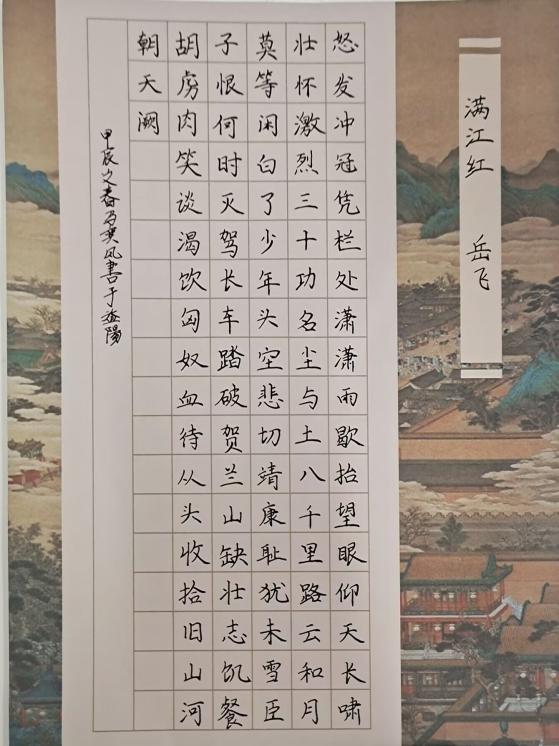 满江红 岳飞
怒发冲冠凭栏处潇潇雨歇抬望眼仰天长啸
壮怀激烈三十功名尘与土八千里路云和月
莫等闲白了少年头空悲切靖康耻犹未雪臣
子恨何时灭驾长车踏破贺兰山缺壮志饥餐
胡虏肉笑谈渴饮匈奴血待从头收拾旧山河
朝天阙
甲辰之春英风書于益陽